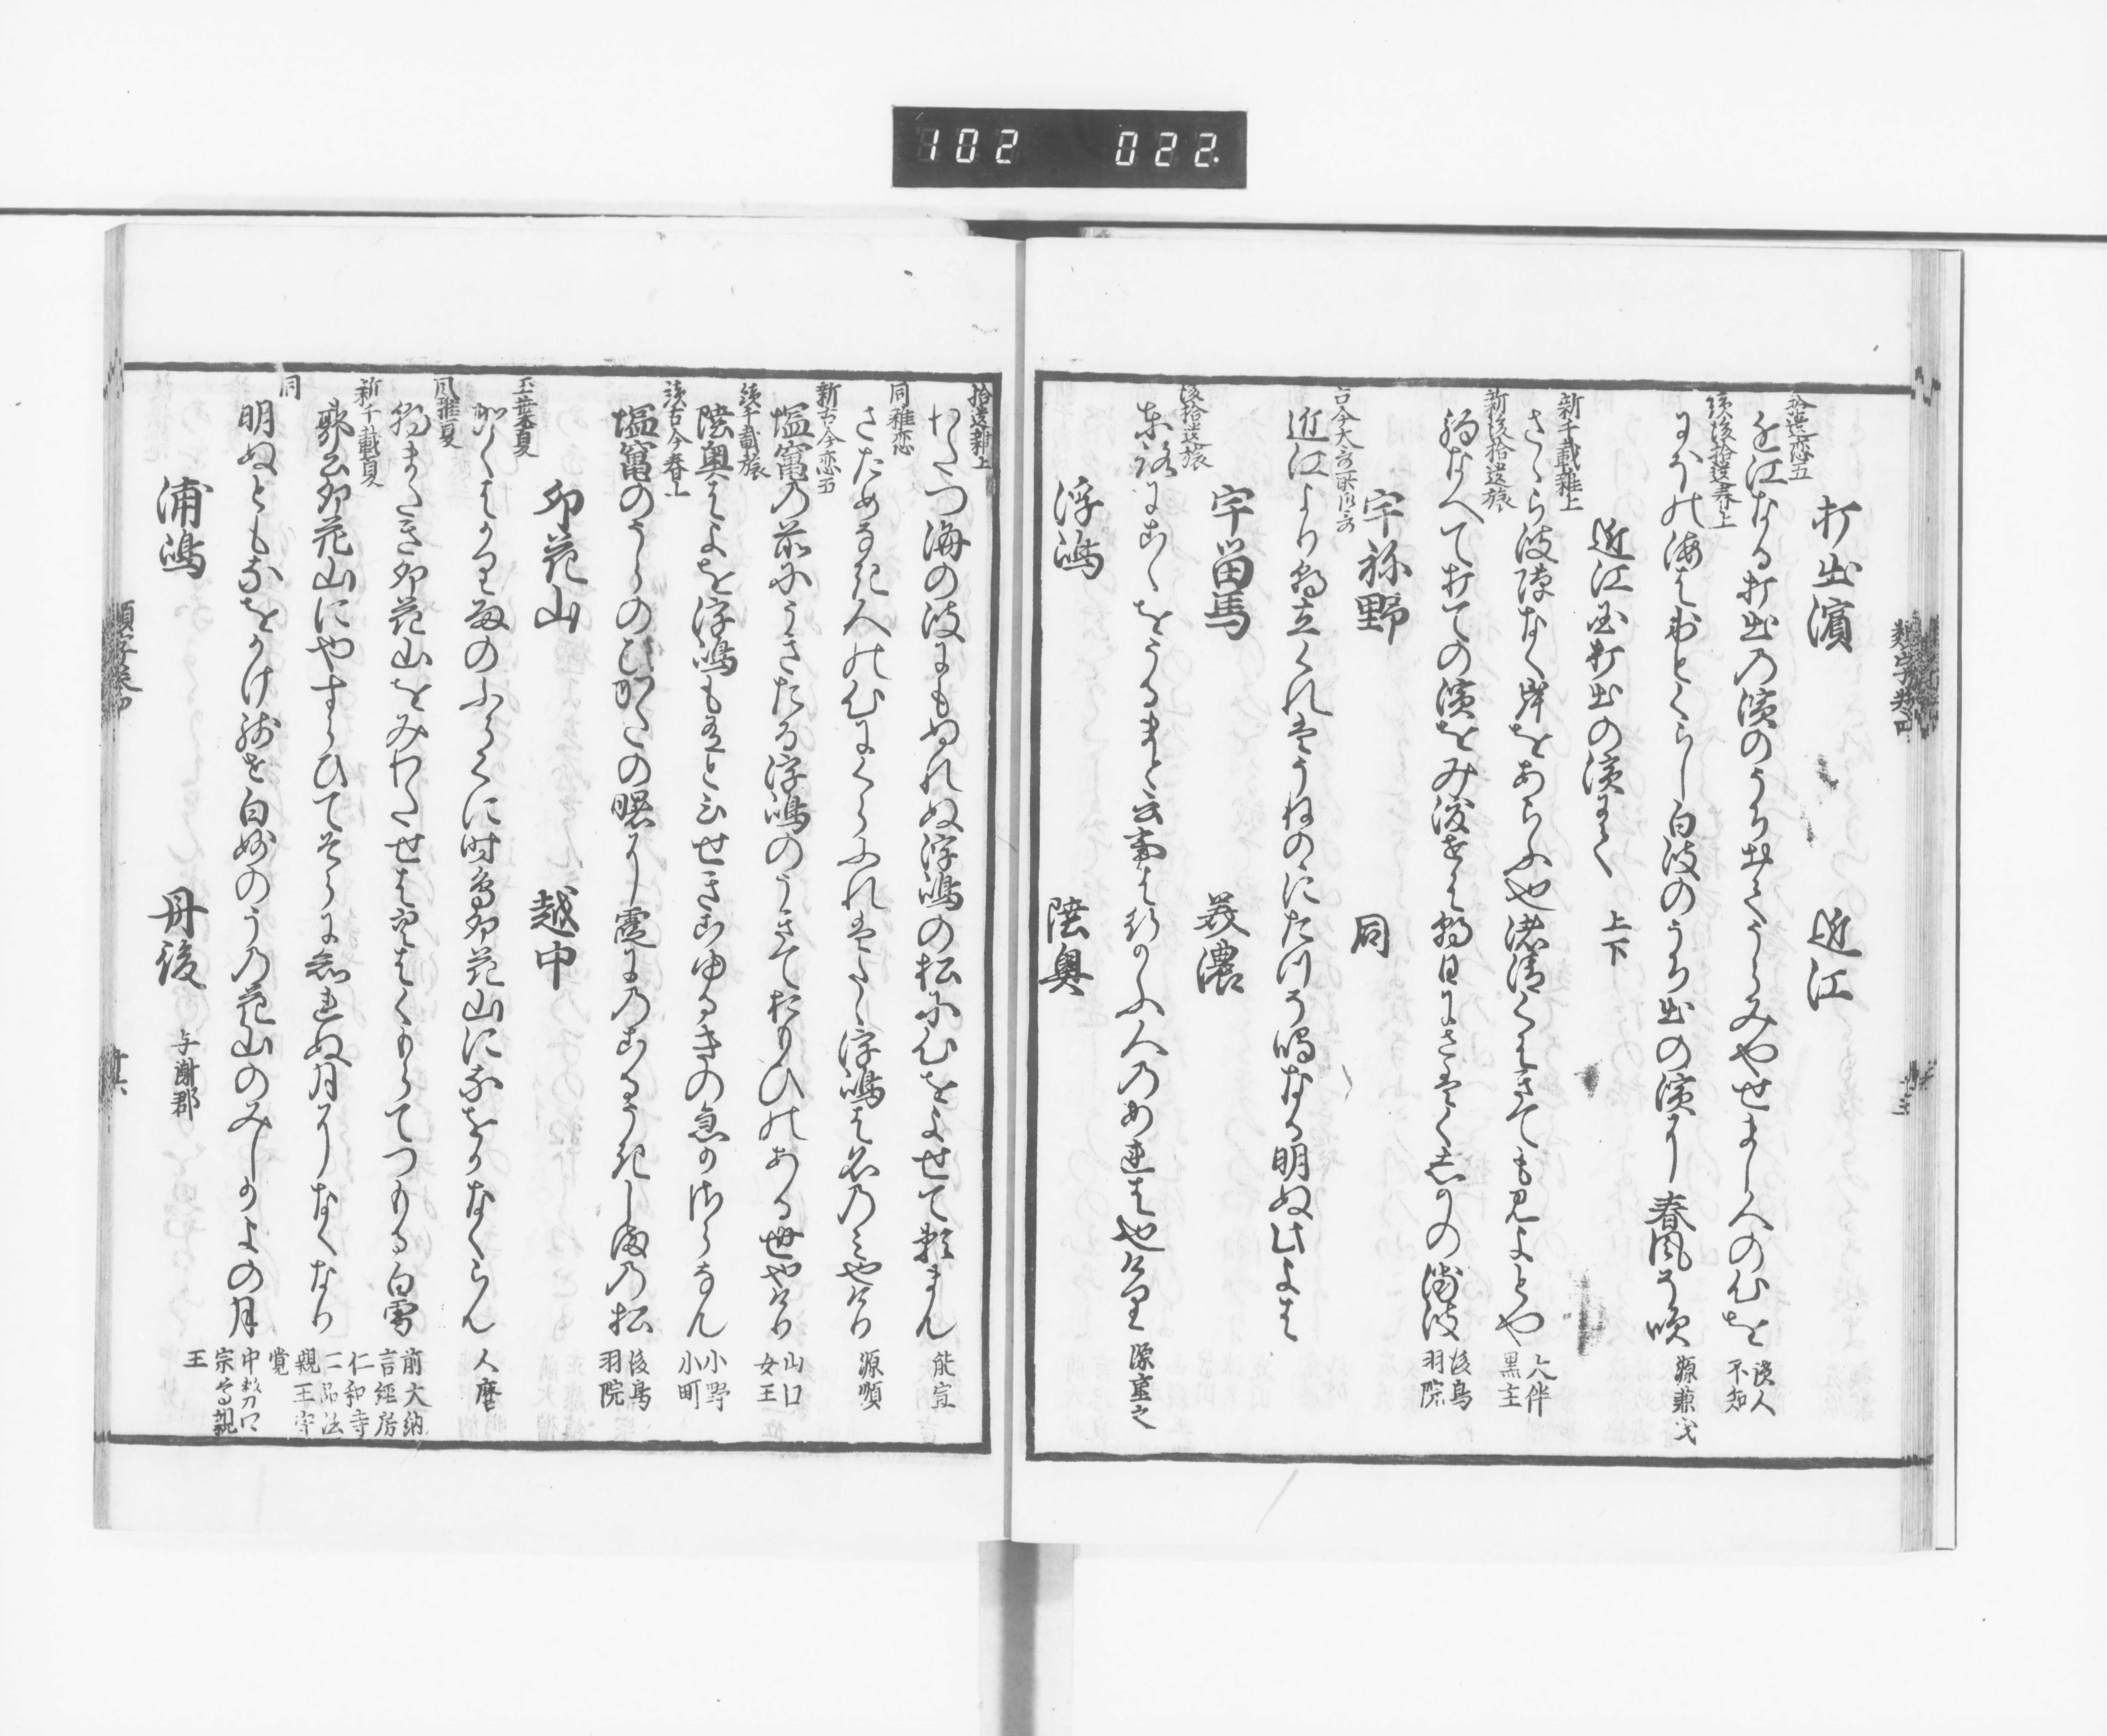 102 022.
類字巻四
打出濱 近江
拾遺恋五
近江なる打出の濱のうちいてゝうらみやせまし人の心を 読人不知
続後拾遺春上
にほの海はまた
白波のうち出の濱に春風そ吹 源兼氏
近江國打出の濱にて 上下
新千載雑上
さゝら波隙なく岸をあらふ也渚清くはきても見よとや 大伴黒主
新後拾遺旅
朝なへて打ての濱をみ渡せは朝日にさはく志かの浦波 後鳥羽院
宇祢野 同
古今大哥所御哥
近江より朝立くれはうねのにたつそ鳴なる明ぬ此よは
宇留馬 美濃
後拾遺旅
東路にこゝをうるまと云事は行かふ人のあれは也けり 源重之
浮嶋 陸奥
拾遺雑上
わたつ海の波にもぬれぬ浮嶋の松に心をよせて頼まん 能宣
同雑恋
さためなき人の心にくらふれはたゝ浮嶋は名のみ也けり 源順
新古今恋五
塩竃の前にうきたる浮嶋のうきて思ひのある世也けり 山口女王
続千載旅
陸奥はよを浮嶋も有といふせきこゆるきの急かさらなん 小野小町
続古今春上
塩竃のうらのひかたの曙に霞にのこるうきしまの松 後鳥羽院
卯花山 越中
玉葉夏
かくはかり雨のふらくに時鳥卯花山になをかなくらん 人麿
風雅夏
朝またき卯花山をみわたせは空はくもりてつもる白雪 前大納言経房
新千載夏
郭公卯花山にやすらひてそらに知れぬ月になくなり 仁和寺二品法親王守覚
同
明ぬともなをかけ残せ白妙のうの花山のみしかよの月 中務卿宗尊親王
浦嶋 丹後 与謝郡
類字巻四
十六